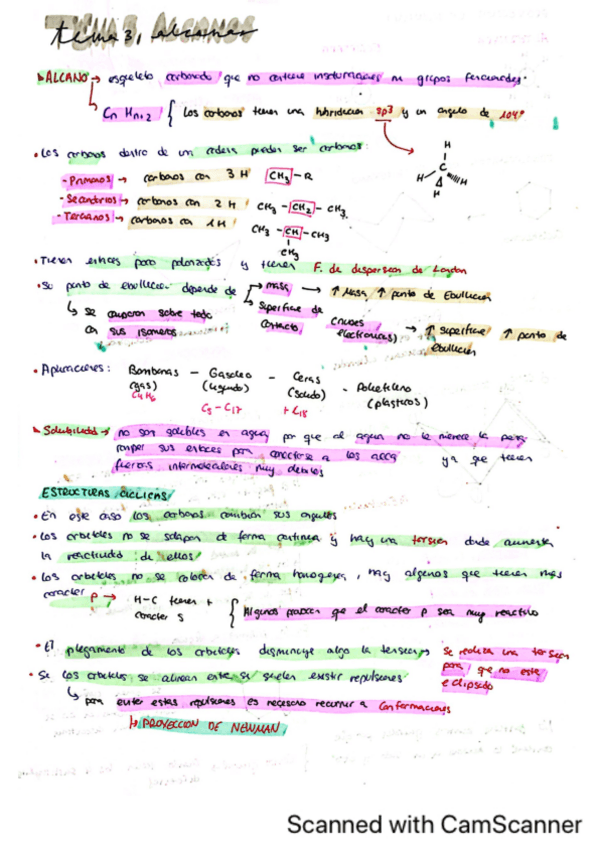 tema 3, alcanos
ALCANO → esqueleto carbonado que no contiene insaturaciones ni grupos funcionales.
Cn Hn+2 { Los carbonos tienen una hibridación sp3 y un angulo de 109°
H
C
H H
H
• Los carbonos dentro de un cadena pueden ser carbonos:
- Primarios → carbonos con 3 H CH3 - R
- Secundarios → carbonos con 2 H CH3 - CH2 - CH3
- Terciarios → carbonos con 1H CH3 - CH - CH3
CH3
• Tienen enlaces poco polarizados y tienen F. de dispersion de London
• Su punto de ebullicion depende de masa → ↑ Masa ↑ punto de Ebullicion
↳ se comparan sobre todo con sus isomeros
Superficie de contacto (nubes electronicas) → ↑ superficie ↑ punto de ebullicion
• Aplicaciones: Bombonas - Gasoleo - Ceras - Polietileno
(gas) (liquido) (solido) (plasticos)
C5 - C17 + C18
Solubilidad → no son solubles en agua por que al agua no le merece la pena
romper sus enlaces para conectarse a los ya que tienen
fuerzas intermoleculares muy debiles
ESTRUCTURAS CICLICAS
• En este caso los carbonos cambian sus angulos
• Los orbitales no se solapan de forma continua y hay una torsion donde aumenta
la reactividad de ellos
• Los orbitales no se colocan de forma homogenea, hay algunos que tienen mas
caracter p → H-C tienen + caracter s { Algunos provocan que el caracter p sea muy reactivo
• El plegamiento de los orbitales disminuye algo la tension → Se realiza una torsion para que no este eclipsado
• Si los orbitales se alinean entre si suelen existir repulsiones
↳ para evitar estas repulsiones es necesario recurrir a Conformaciones
↳ PROYECCION DE NEWMAN
Scanned with CamScanner